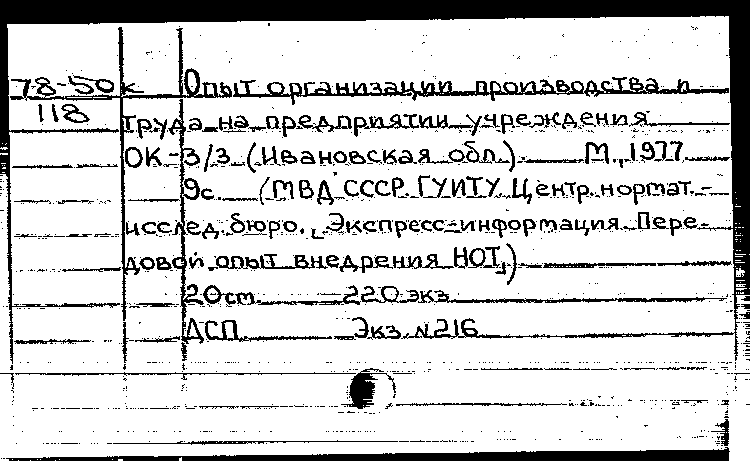 78-50к Опыт организации производства и
118 труда на предприятии учреждения
ОК-3/3 (Ивановская обл.). М., 1977
9с. (МВД СССР. ГУИТУ. Центр. нормат.-
исслед. бюро. Экспресс-информация. Пере-
довой опыт внедрения НОТ.)
20ст. 220 экз.
ДСП Экз. №216